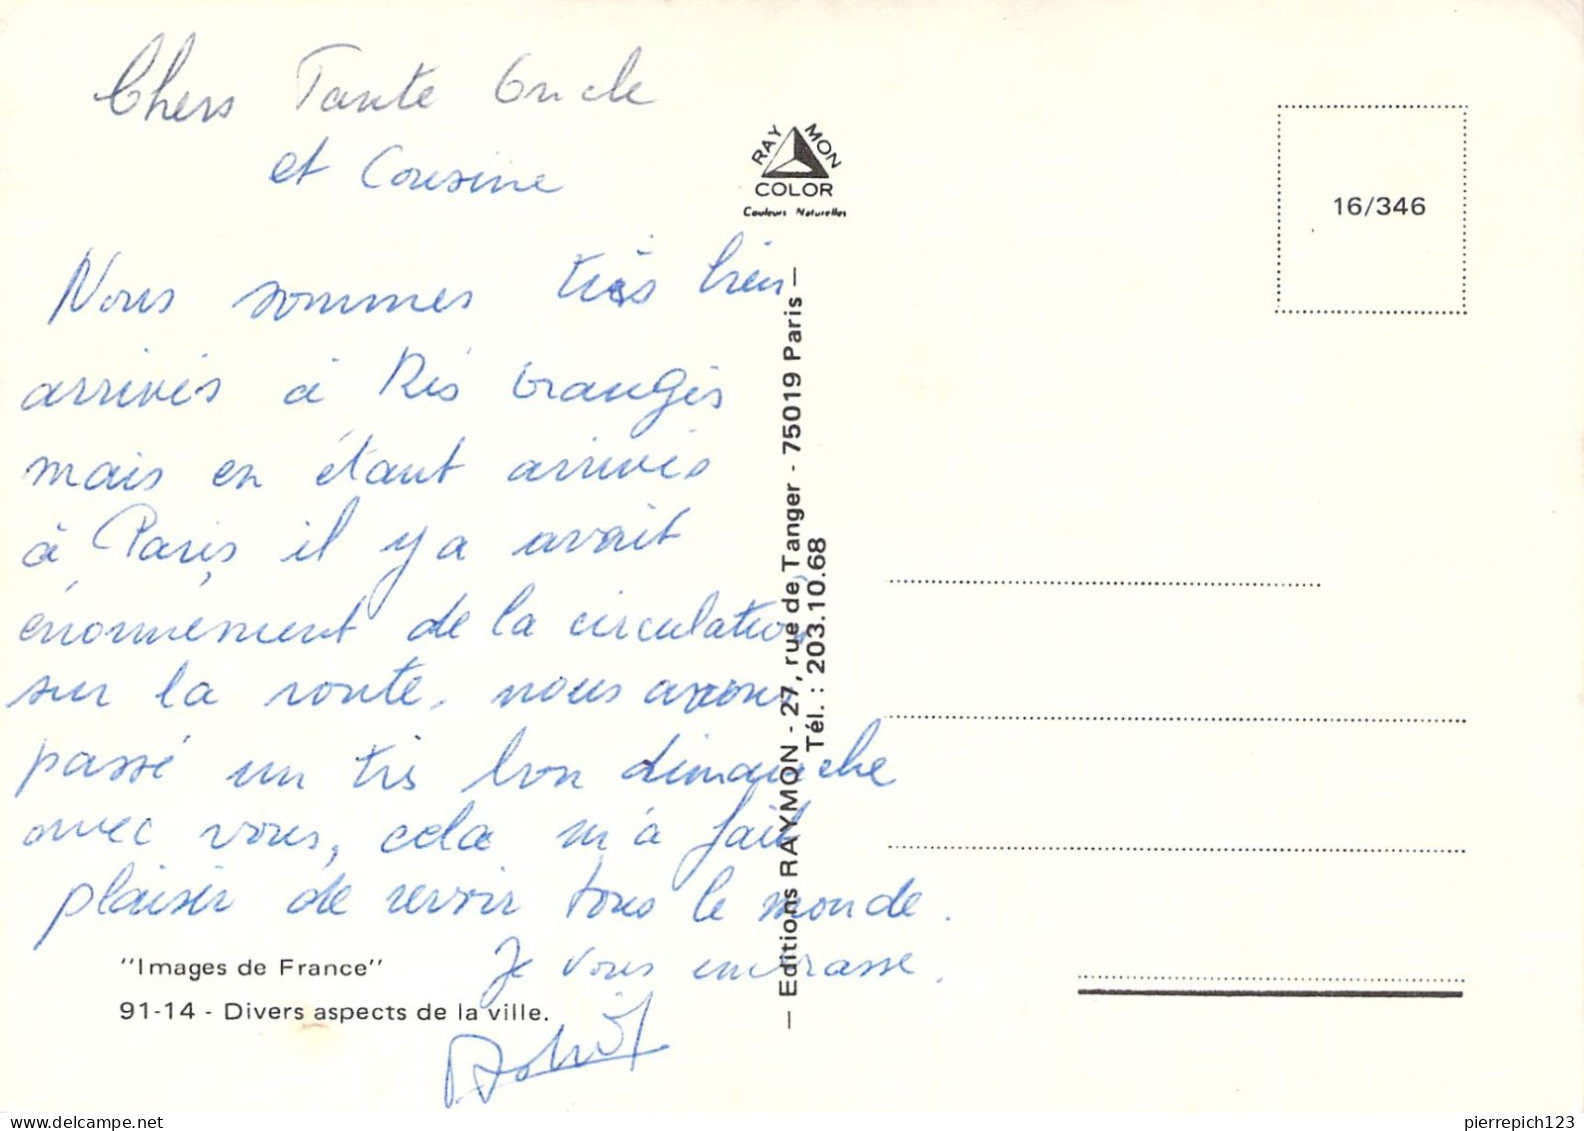 Chers Tante Oncle
et Cousine
Nous sommes très bien
arrivés à Ris Orangis
mais en étant arrivés
à Paris il y a avait
énormément de la circulation
sur la route. nous avons
passé un très bon dimanche
avec vous, cela m'a fait
plaisir de revoir tous le monde.
Je vous embrasse.
"Images de France"
91-14 - Divers aspects de la ville.
RAYMON
COLOR
Couleurs Naturelles
— Editions RAYMON - 27, rue de Tanger - 75019 Paris —
Tél. : 203.10.68
16/346
pierrepich123